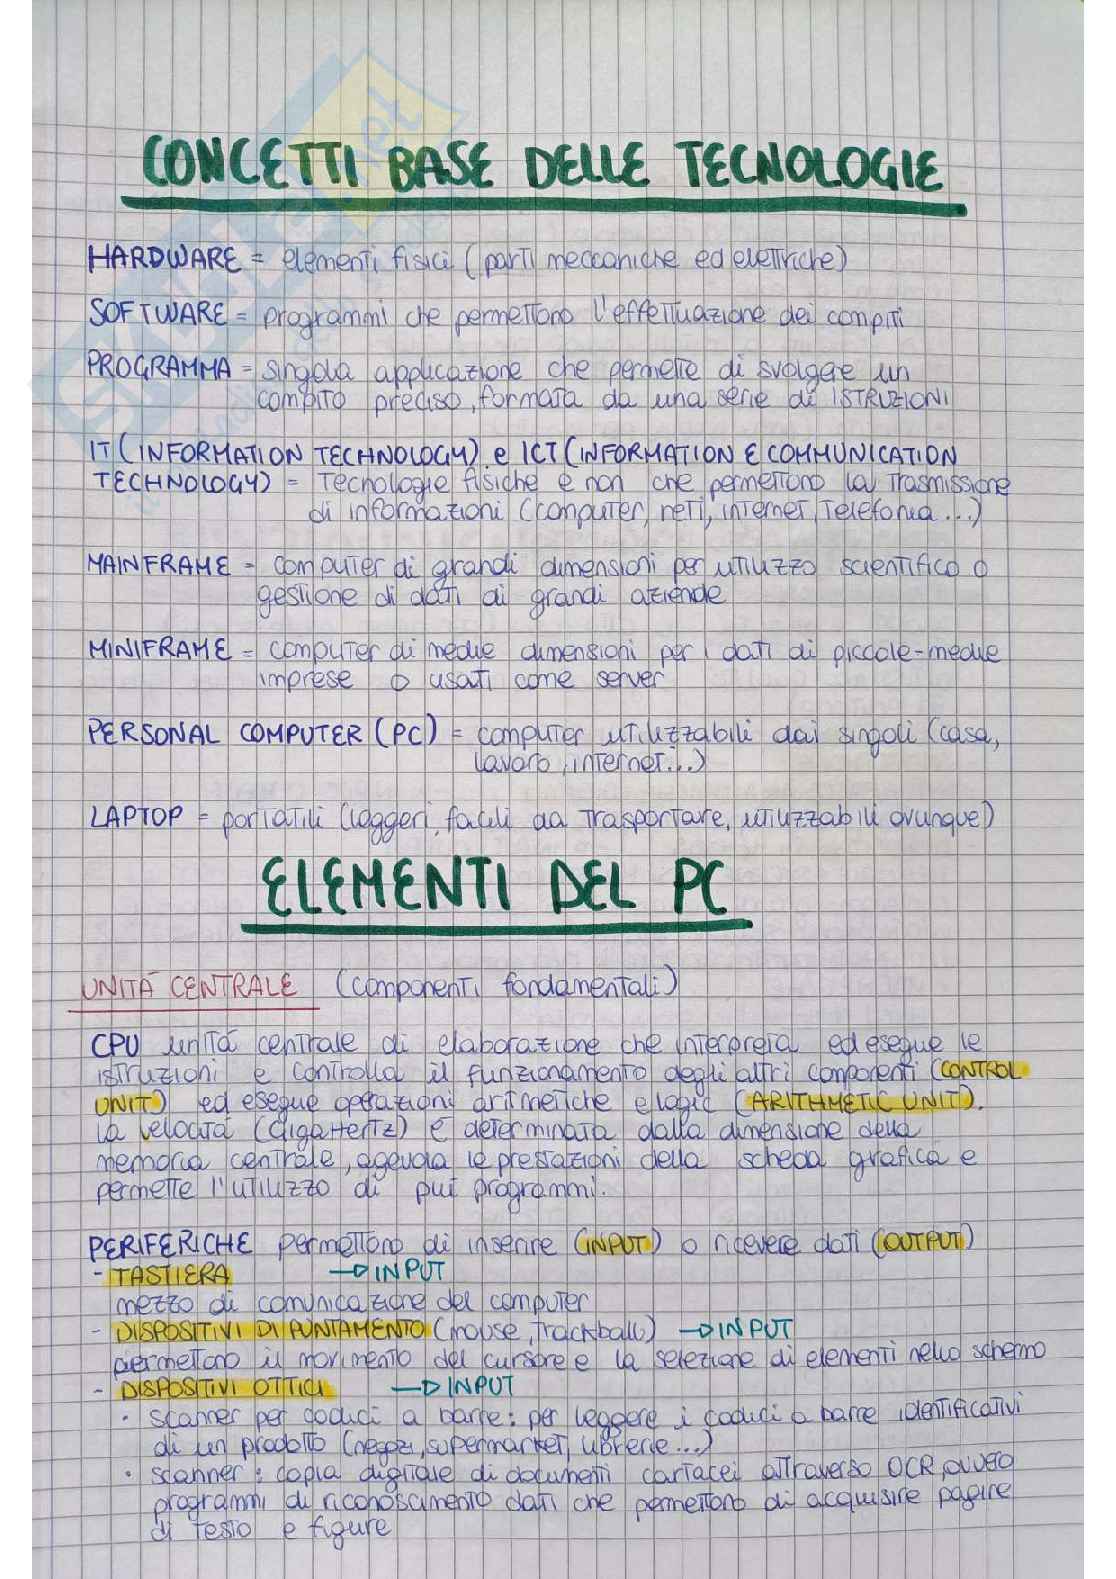 CONCETTI BASE DELLE TECNOLOGIE
HARDWARE = elementi fisici (parti meccaniche ed elettriche)
SOFTWARE = programmi che permettono l'effettuazione dei compiti
PROGRAMMA = singola applicazione che permette di svolgere un
compito preciso, formata da una serie di ISTRUZIONI
IT (INFORMATION TECHNOLOGY) e ICT (INFORMATION E COMMUNICATION
TECHNOLOGY) = tecnologie fisiche e non che permettono la trasmissione
di informazioni (computer, reti, internet, telefonia...)
MAINFRAME = computer di grandi dimensioni per utilizzo scientifico o
gestione di dati di grandi aziende
MINIFRAME = computer di medie dimensioni per i dati di piccole-medie
imprese o usati come server
PERSONAL COMPUTER (PC) = computer utilizzabili dai singoli (casa,
lavoro, internet...)
LAPTOP = portatili (leggeri, facili da trasportare, utilizzabili ovunque)
ELEMENTI DEL PC
UNITÁ CENTRALE (componenti fondamentali)
CPU unitá centrale di elaborazione che interpreta ed esegue le
istruzioni e controlla il funzionamento degli altri componenti (CONTROL
UNIT) ed esegue operazioni aritmetiche e logic (ARITHMETIC UNIT).
La velocitá (GigaHertz) é determinata dalla dimensione della
memoria centrale, agevola le prestazioni della scheda grafica e
permette l'utilizzo di piú programmi.
PERIFERICHE permettono di inserire (INPUT) o ricevere dati (OUTPUT)
- TASTIERA → INPUT
mezzo di comunicazione del computer
- DISPOSITIVI DI PUNTAMENTO (mouse, trackball) → INPUT
permettono il movimento del cursore e la selezione di elementi nello schermo
- DISPOSITIVI OTTICI → INPUT
• scanner per codici a barre: per leggere i codici a barre identificativi
di un prodotto (negozi, supermarket, librerie...)
• scanner: copia digitale di documenti cartacei attraverso OCR, ovvero
programmi di riconoscimento dati che permettono di acquisire pagine
di testo e figure